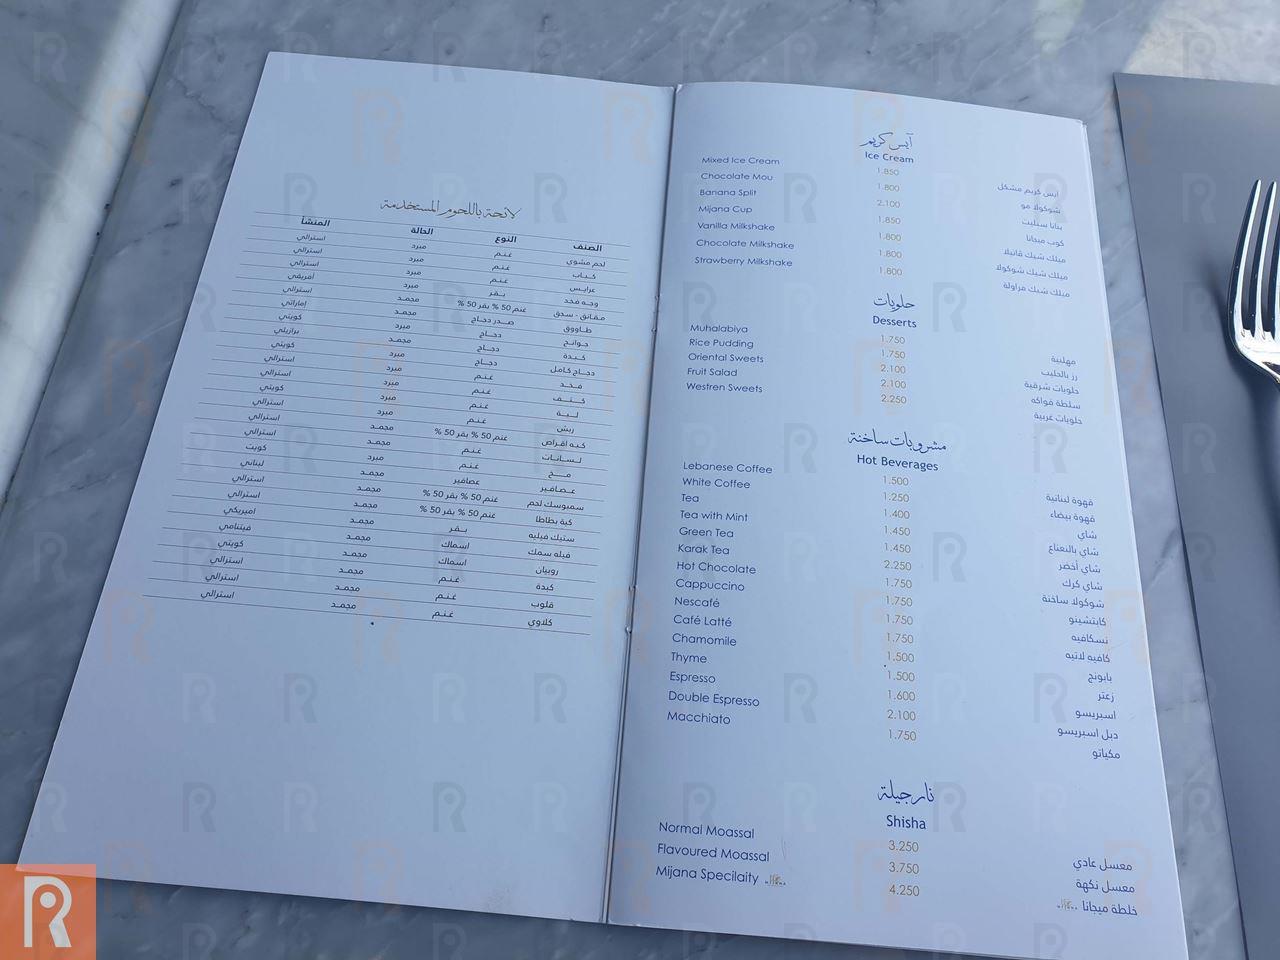 لائحة باللحوم المستخدمة
الصنف النوع الحالة المنشأ
لحم مشوي غنم مبرد استرالي
كباب غنم مبرد استرالي
عرايس غنم مبرد استرالي
وجه فخد بقر مبرد أفريقي
مقانق - سدق غنم 50 % بقر 50 % مجمد استرالي
طاووق صدر دجاج مجمد إماراتي
جوانح دجاج مبرد كويتي
كبدة دجاج مجمد برازيلي
دجاج كامل دجاج مبرد كويتي
فخد غنم مبرد استرالي
كتف غنم مبرد استرالي
لية غنم مبرد كويتي
ريش غنم مبرد استرالي
كبه اقراص غنم 50 % بقر 50 % مجمد استرالي
لسانات غنم مجمد استرالي
مخ غنم مبرد كويت
عصافير عصافير مجمد لبناني
سمبوسك لحم غنم 50 % بقر 50 % مجمد استرالي
كبة بطاطا غنم 50 % بقر 50 % مجمد استرالي
ستيك فيليه بقر مجمد امريكي
فيله سمك اسماك مجمد فيتنامي
روبيان اسماك مجمد كويتي
كبدة غنم مجمد استرالي
قلوب غنم مجمد استرالي
كلاوي غنم مجمد استرالي
آيس كريم
Ice Cream
Mixed Ice Cream 1.850 ايس كريم مشكل
Chocolate Mou 1.800 شوكولا مو
Banana Split 2.100 بنانا سبليت
Mijana Cup 1.850 كوب ميجانا
Vanilla Milkshake 1.800 ميلك شيك ڤانيلا
Chocolate Milkshake 1.800 ميلك شيك شوكولا
Strawberry Milkshake 1.800 ميلك شيك فراولة
حلويات
Desserts
Muhalabiya 1.750 مهلبية
Rice Pudding 1.750 رز بالحليب
Oriental Sweets 2.100 حلويات شرقية
Fruit Salad 2.100 سلطة فواكه
Westren Sweets 2.250 حلويات غربية
مشروبات ساخنة
Hot Beverages
Lebanese Coffee 1.500 قهوة لبنانية
White Coffee 1.250 قهوة بيضاء
Tea 1.400 شاي
Tea with Mint 1.450 شاي بالنعناع
Green Tea 1.450 شاي أخضر
Karak Tea 2.250 شاي كرك
Hot Chocolate 1.750 شوكولا ساخنة
Cappuccino 1.750 كابتشينو
Nescafé 1.750 نسكافيه
Café Latté 1.500 كافيه لاتيه
Chamomile 1.500 بابونج
Thyme 1.600 زعتر
Espresso 2.100 اسبريسو
Double Espresso 1.750 دبل اسبريسو
Macchiato مكياتو
نارجيلة
Shisha
Normal Moassal 3.250 معسل عادي
Flavoured Moassal 3.750 معسل نكهة
Mijana Specilaity 4.250 خلطة ميجانا